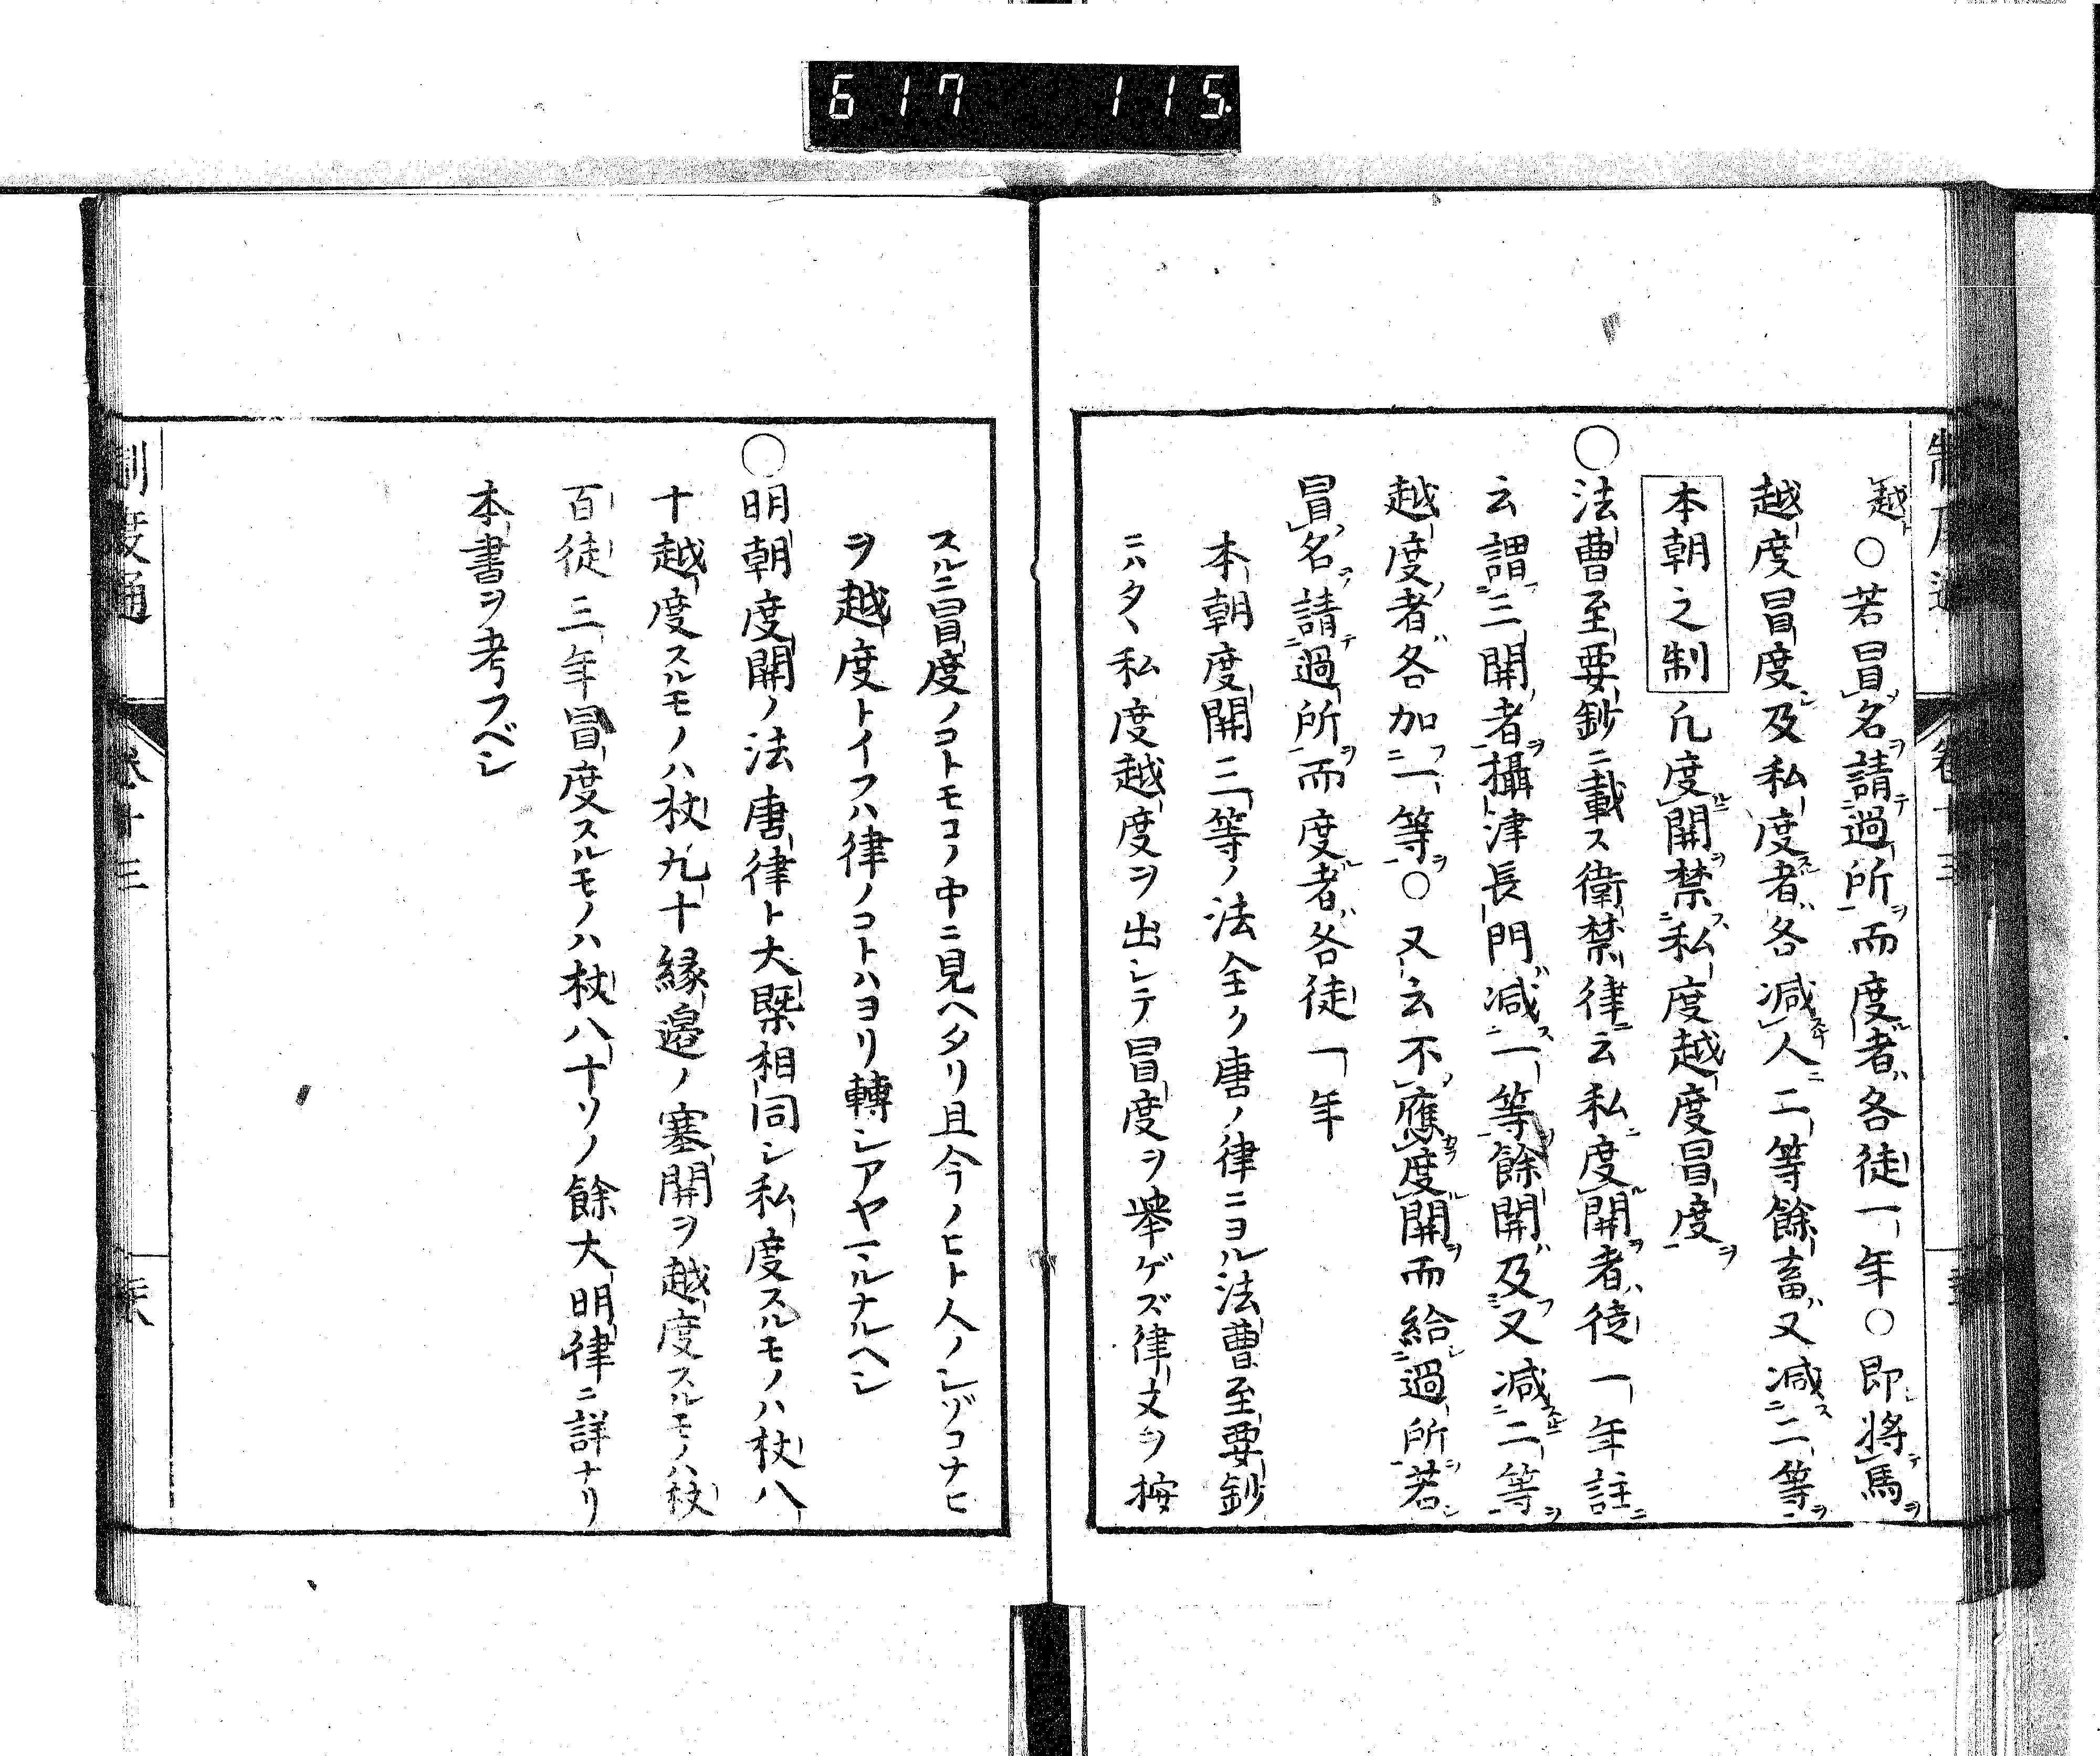 617 115
越○若冒名請過所而度者各徒一年○即將馬
越度冒度及私度者各減人二等餘畜又減二等
本朝之制 凢度関禁私度越度冒度
○法曹至要鈔ニ載ス衛禁律云私度関者徒一年註
云謂三関者攝津長門減一等餘関及又減二等
越度者各加一等○又云不應度関而給過所若
冒名請過所而度者各徒一年
本朝度関三等ノ法全ク唐ノ律ニヨル法曹至要鈔
ニハタヽ私度越度ヲ出シテ冒度ヲ舉ゲズ律文ヲ按
スルニ冒度ノコトモコノ中ニ見ヘタリ且今ノヒト人ノシゾコナヒ
ヲ越度トイフハ律ノコトハヨリ轉シアヤマルナルヘシ
○明朝度関ノ法唐律ト大槩相同シ私度スルモノハ杖八
十越度スルモノハ杖九十縁邉ノ塞関ヲ越度スルモノハ杖
百徒三年冒度スルモノハ杖八十ソノ餘大明律ニ詳ナリ
本書ヲ考フベシ
制度通 卷十三